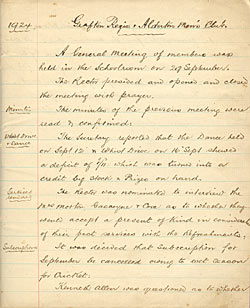 1924
Grafton Regis & Alderton Men's Club.
A General Meeting of members was
held in the Schoolroom on 29 September.
The Rector presided and opened and closed
the meeting with prayer.
Minutes
The minutes of the previous meeting were
read & confirmed.
Whist Drive
& Dance
The Secretary reported that the Dance held
on Sept 12 & Whist Drive on 16 Sept showed
a deficit of which was turned into a
credit by stock & Prizes on hand.
The Rector was nominated to interview the
& as to whether they
would accept a present of kind in
of their past services with the Refreshments.
Subscriptions
It was decided that Subscription for
September be cancelled owing to wet season
for Cricket.
Kenneth Allen was questioned as to whether